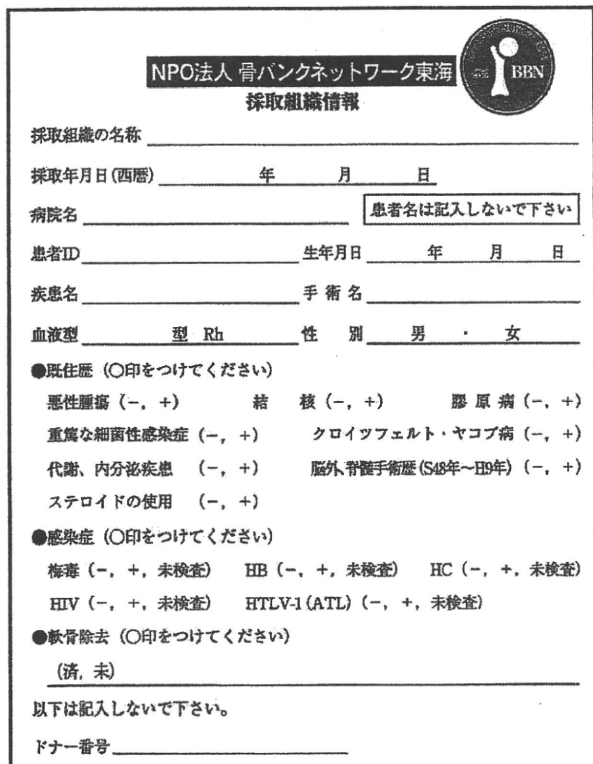 NPO法人 骨バンクネットワーク東海
BBN
採取組織情報
採取組織の名称
採取年月日(西暦) 年 月 日
病院名 患者名は記入しないで下さい
患者ID 生年月日 年 月 日
疾患名 手術名
血液型 型 Rh 性別 男 ・ 女
●既住歴 (○印をつけてください)
悪性腫瘍 (−, +) 結核 (−, +) 膠原病 (−, +)
重篤な細菌性感染症 (−, +) クロイツフェルト・ヤコブ病 (−, +)
代謝、内分泌疾患 (−, +) 脳外、脊髄手術歴 (S48年〜H9年) (−, +)
ステロイドの使用 (−, +)
●感染症 (○印をつけてください)
梅毒 (−, +, 未検査) HB (−, +, 未検査) HC (−, +, 未検査)
HIV (−, +, 未検査) HTLV-1 (ATL) (−, +, 未検査)
●軟骨除去 (○印をつけてください)
(済, 未)
以下は記入しないで下さい。
ドナー番号